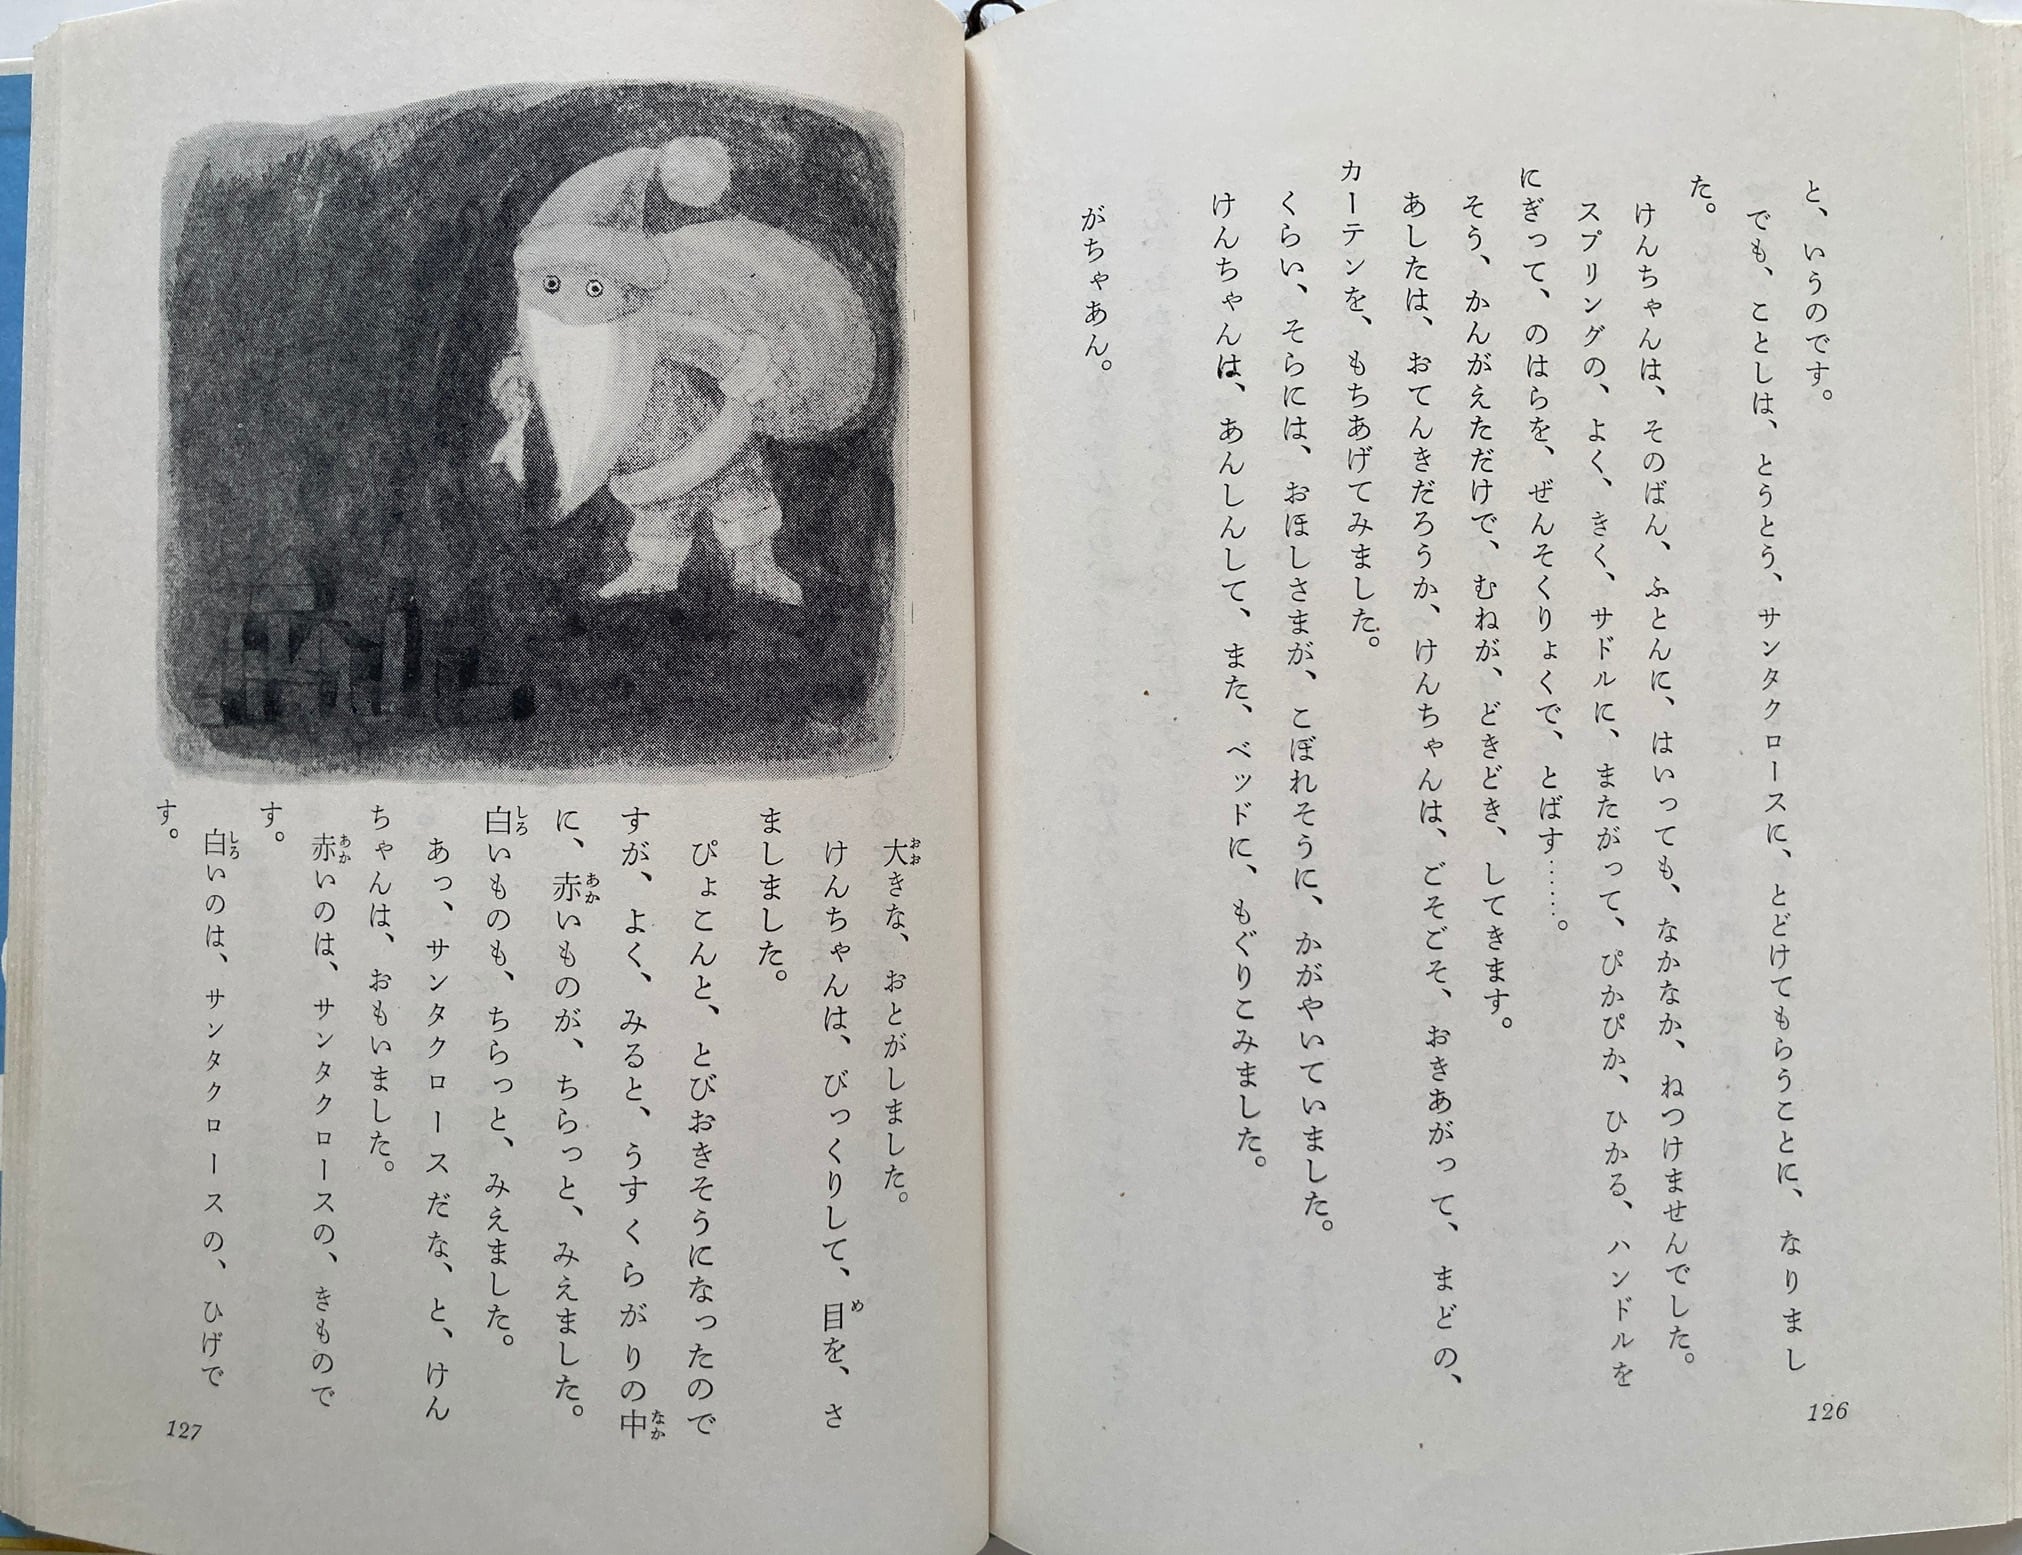 と、いうのです。
でも、ことしは、とうとう、サンタクロースに、とどけてもらうことに、なりまし
た。
けんちゃんは、そのばん、ふとんに、はいっても、なかなか、ねつけませんでした。
スプリングの、よく、きく、サドルに、またがって、ぴかぴか、ひかる、ハンドルを
にぎって、のはらを、ぜんそくりょくで、とばす……。
そう、かんがえただけで、むねが、どきどき、してきます。
あしたは、おてんきだろうか、けんちゃんは、ごそごそ、おきあがって、まどの、
カーテンを、もちあげてみました。
くらい、そらには、おほしさまが、こぼれそうに、かがやいていました。
けんちゃんは、あんしんして、また、ベッドに、もぐりこみました。
がちゃあん。
126
大きな、おとがしました。
けんちゃんは、びっくりして、目を、さ
ましました。
ぴょこんと、とびおきそうになったので
すが、よく、みると、うすくらがりの中
に、赤いものが、ちらっと、みえました。
白いものも、ちらっと、みえました。
あっ、サンタクロースだな、と、けん
ちゃんは、おもいました。
赤いのは、サンタクロースの、きもので
す。
白いのは、サンタクロースの、ひげで
す。
127